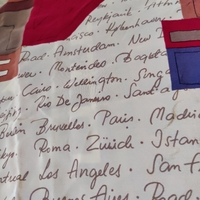 Reykjavik · Ath
Kopenhagen
Amsterdam · New D
Montevideo · Bogota
Cairo · Wellington · Singa
Rio De Janeiro · Santiag
Berlin Bruxelles · Paris · Madrid
Roma · Zürich · Istan
Los Angeles · San F
Buenos Aires